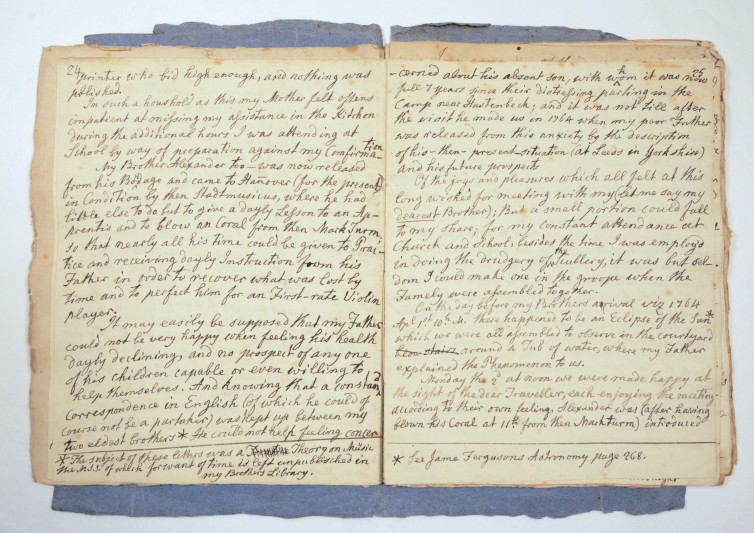 24
printer who bid high enough, and nothing was
published.
In such a houshold as this my Mother felt oftens
impatient at missing my assistance in the Kitshon
during the additional hours I was attending at
School by way of preparation against my Confirma-
tion
My Brother Alexander too – was now released
from his Bondage and came to Hanover (for the present)
in Condition by then Stadtmusicus, where he had
little else to do but to give a dayly Lesson to an Ap-
prentis and to blow an Coral from then Mark Turm,
so that nearly all his time could be given to Prac-
tice and receiving dayly Instruction from his
Father in order to recover what was lost by
time and to perfect him for an First-rate Violin
player.
It may easily be supposed that my Father
could not be very happy when feeling his health
dayly declining, and no prospect of any one
of his children capable or even willing to
help themselves. And knowing that a constant
Correspondence in English (of which he could of
Course not be a partaker) was kept up between my
two eldest brothers * He could not help feeling concer-
* The subject of these letters was a Theory on Music
the MSS. of which for want of time is left unpublisched in
my Brothers Library.
25
-cerned about his absent son, with whom it was now
full 7 years since their distressing parting in the
Camp near Hastenbeck; and it was not till after
the visit he made us in 1764 when my poor Father
was released from this anxiety by the description
of his-then-present-situation (at Leeds in Yorkshire)
and his future prospects.
Of the joys and pleasures which all felt at this
long wished for meeting with my (let me say my
dearest Brother); But a small portion could fall
to my share; for my constant attendance at
Church and School; besides the time I was employd
in doing the drudgery of the Scullery, it was but sel-
dom I could make one in the groope when the
Famely were assembled together.
On the day before my Brothers arrival viz 1764
Apl 1st 10h M. there happened to be an Eclipse of the Sun *
which we were all assembled to observe in the courtyard
around a Tub of water, where my Father
explained the Phenomenon to us.
Monday the 2d at noon we were made happy at
the sight of the dear Traveller, each enjoying the meeting
according to their own feeling. Alexander was (after having
blown his Coral at 11h from then Markturm) introduced
* See Jame Fergusons Astronomy page 268.